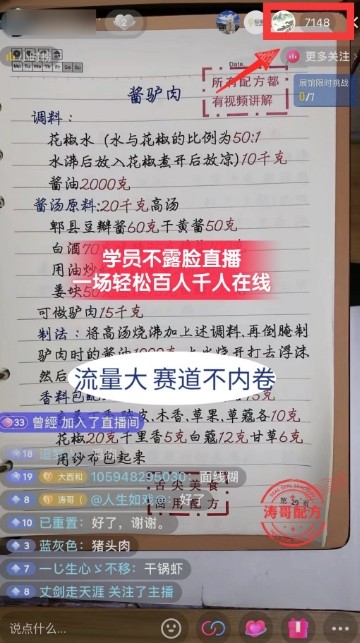 7148
更多关注
展馆限时挑战
0/7
Date
所有配方都
有视频讲解
酱驴肉
调料：
花椒水（水与花椒的比例为50:1
水沸后放入花椒煮开后放凉)10千克
酱油2000克
酱汤原料:20千克高汤
郫县豆瓣酱60克干黄酱50克
白酒70
学员不露脸直播
一场轻松百人千人在线
用油炒
姜块50
可做驴肉15千克
制法：将高汤烧沸加上述调料，再倒腌制
驴肉时的酱油1000
然后
流量大 赛道不内卷
香料包
33 曾經 加入了直播间
木香,草果,草蔻各10克
花椒20克千里香5克白蔻12克甘草6克
用纱布包起来
19 大西和 105948295030：面线糊
8 涛哥 @人生如戏@：好了
舌尖美食
商用配方
涛哥配方
10 已重置：好了，谢谢。
3 蓝灰色：猪头肉
8 一じ生心ゞ不移：干锅虾
8 丈剑走天涯 关注了主播
说点什么...